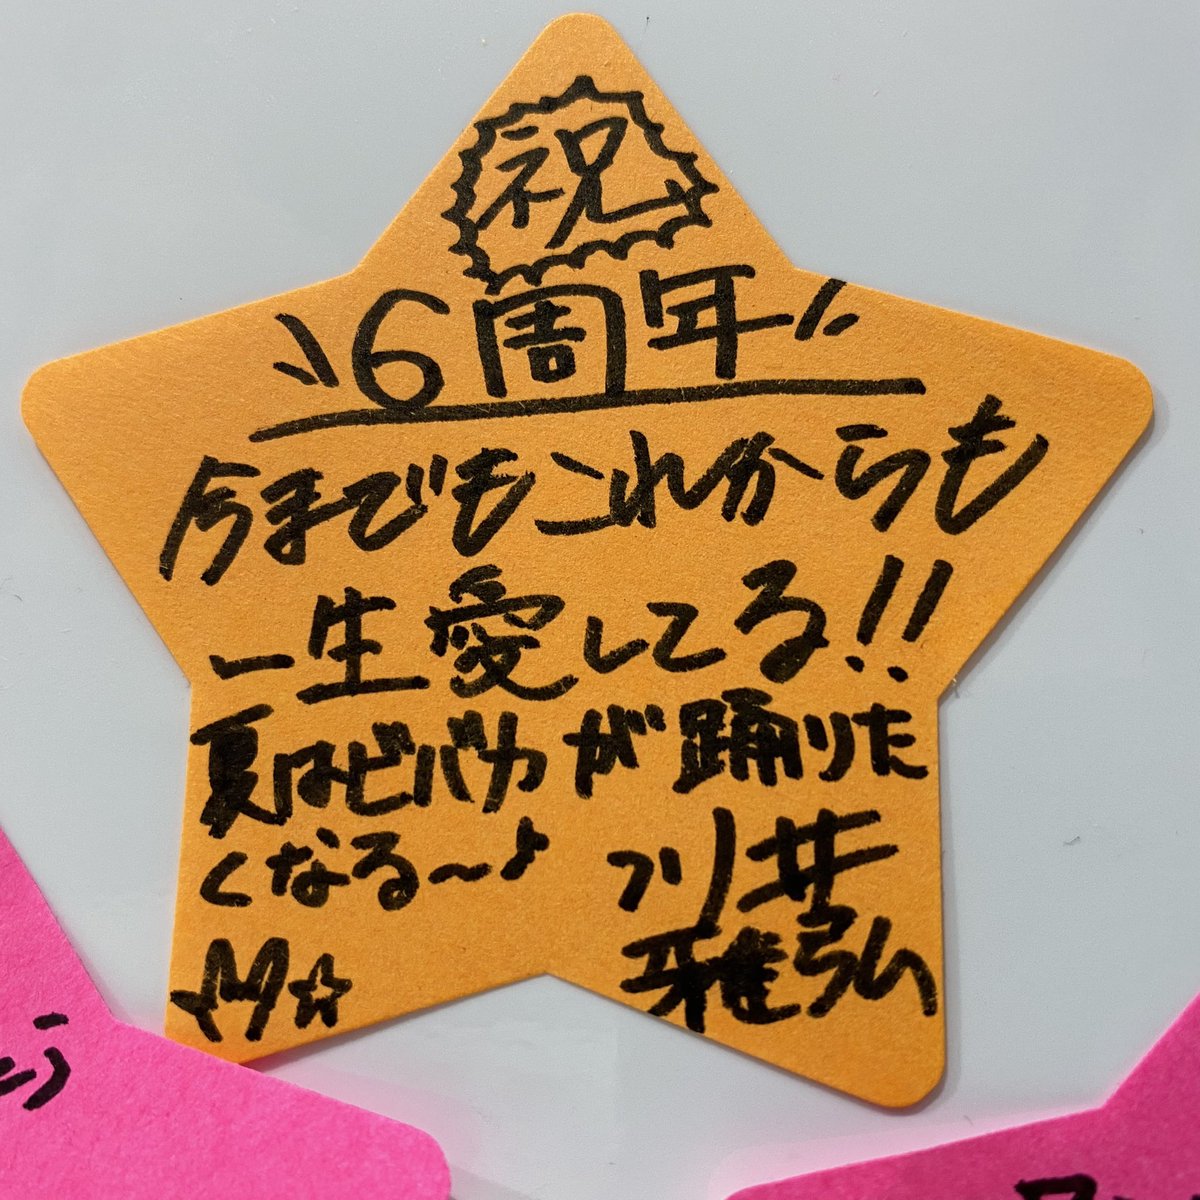 祝
6周年
今までもこれからも
一生愛してる!!
夏はビバカが踊りた
くなる〜♪
川井
雅弘
M☆